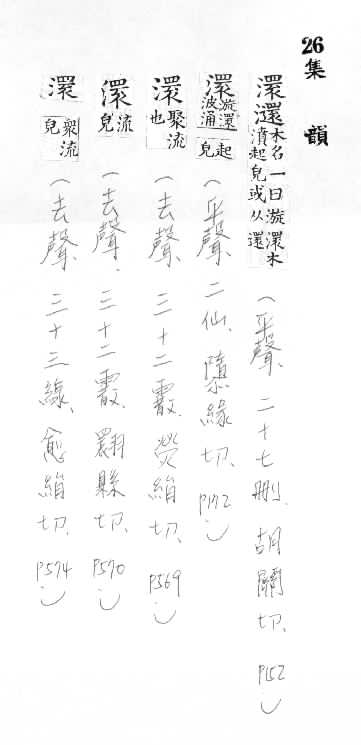 26
集韻
澴 𤄷 水名一曰漩澴水濆起皃或从還（平聲、二十七刪、胡關切、P152）
澴 漩澴波涌起皃（平聲、二仙、隳緣切、P172）
澴 聚流也（去聲、三十二霰、熒絹切、P569）
澴 流皃（去聲、三十二霰、翾縣切、P570）
澴 衆流皃（去聲、三十三線、愈絹切、P574）